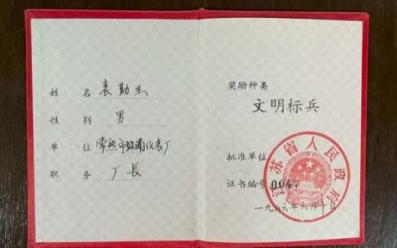 姓名 袁勤生
性别 男
单位 常熟市仪表厂
职务 厂长
奖励种类
文明标兵
批准单位
江苏省人民政府
证书编号 004
一九八六年六月一日